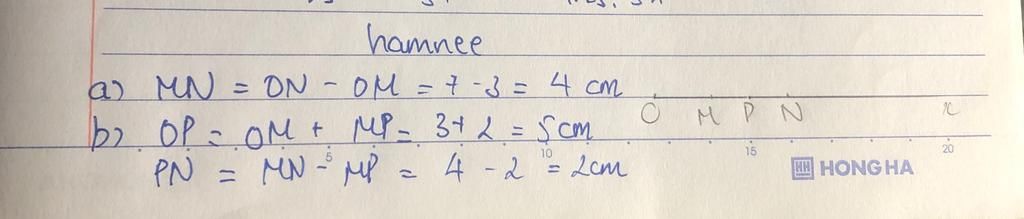 hamnee
a) MN = ON - OM = 7 - 3 = 4 cm
O M P N x
b) OP = OM + MP = 3 + 2 = 5cm
5 10 15 20
PN = MN - MP = 4 - 2 = 2cm
HH HONG HA